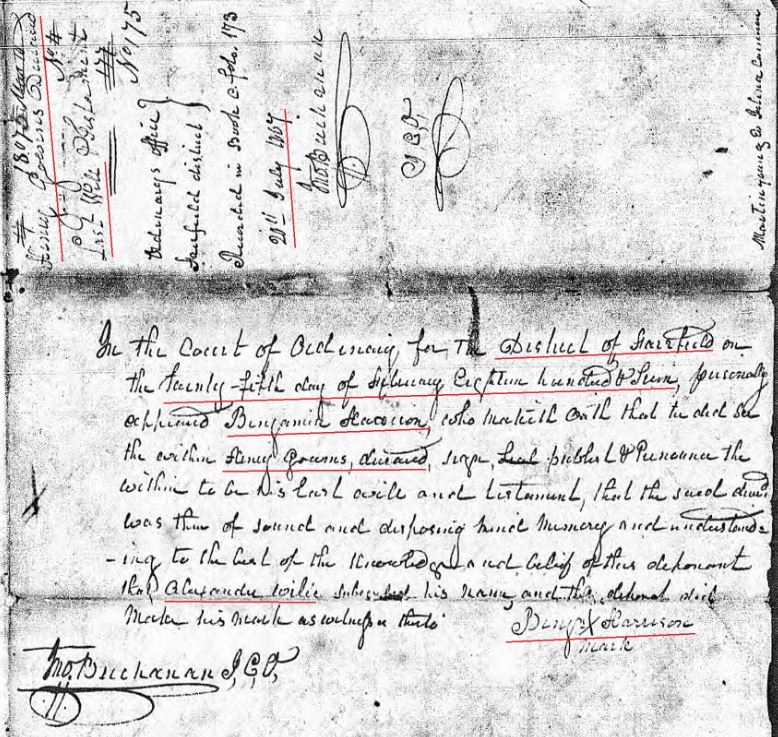 1807
Henry Goewns Deceased
Last Will & Testament
No 175
Ordinarys office
Fairfield district
Recorded in Book C folo. 173
20th July 1807
Jno Buchanan
J. C. O.
In the Court of Ordinary for The District of Fairfield on
the Twenty-fifth day of February Eighteen hundred & Seven, personally
appeared Benjamin Harrison, who maketh Oath that he did see
the within Henry Goewns, deceased, sign, Seal publish & Pronounce the
within to be his Last will and testament, that the said deced
was then of sound and disposing mind Memory and understand-
-ing to the best of the Knowledge and belief of this deponant
that Alexander Wilie subscribed his name, and this deponent did
Make his mark as witness thereto
Benj X Harrison
mark
Jno. Buchanan J, C, O,